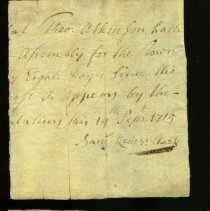 at Theo: Atkinson hath
Assembly for the Town
y Eight Dayes since the
as appears by the
this 14th Sept 1715
Saml Clerk